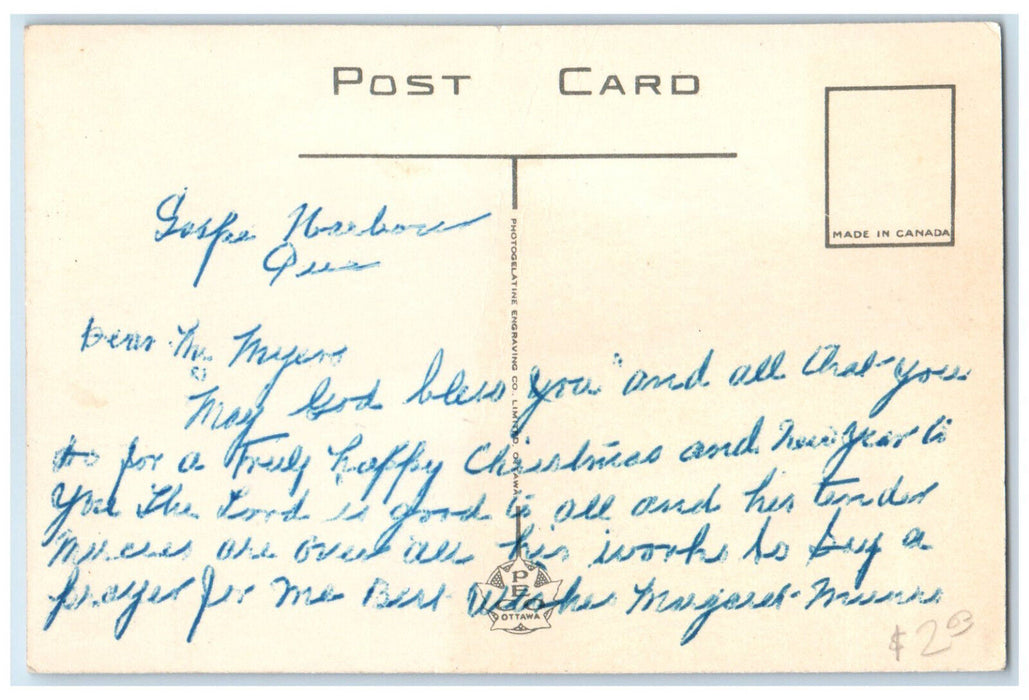 POST CARD
MADE IN CANADA
PHOTOGELATINE ENGRAVING CO. LIMITED, OTTAWA
Gaspe Harbour
Que
Dear Mr. Myers
May God bless you and all that you
do for a truly happy Christmas and New year to
you The Lord is good to all and his tender
Mercies are over all his works so say a
prayer for me Best Wishes Margaret
PECO
OTTAWA
$2.03